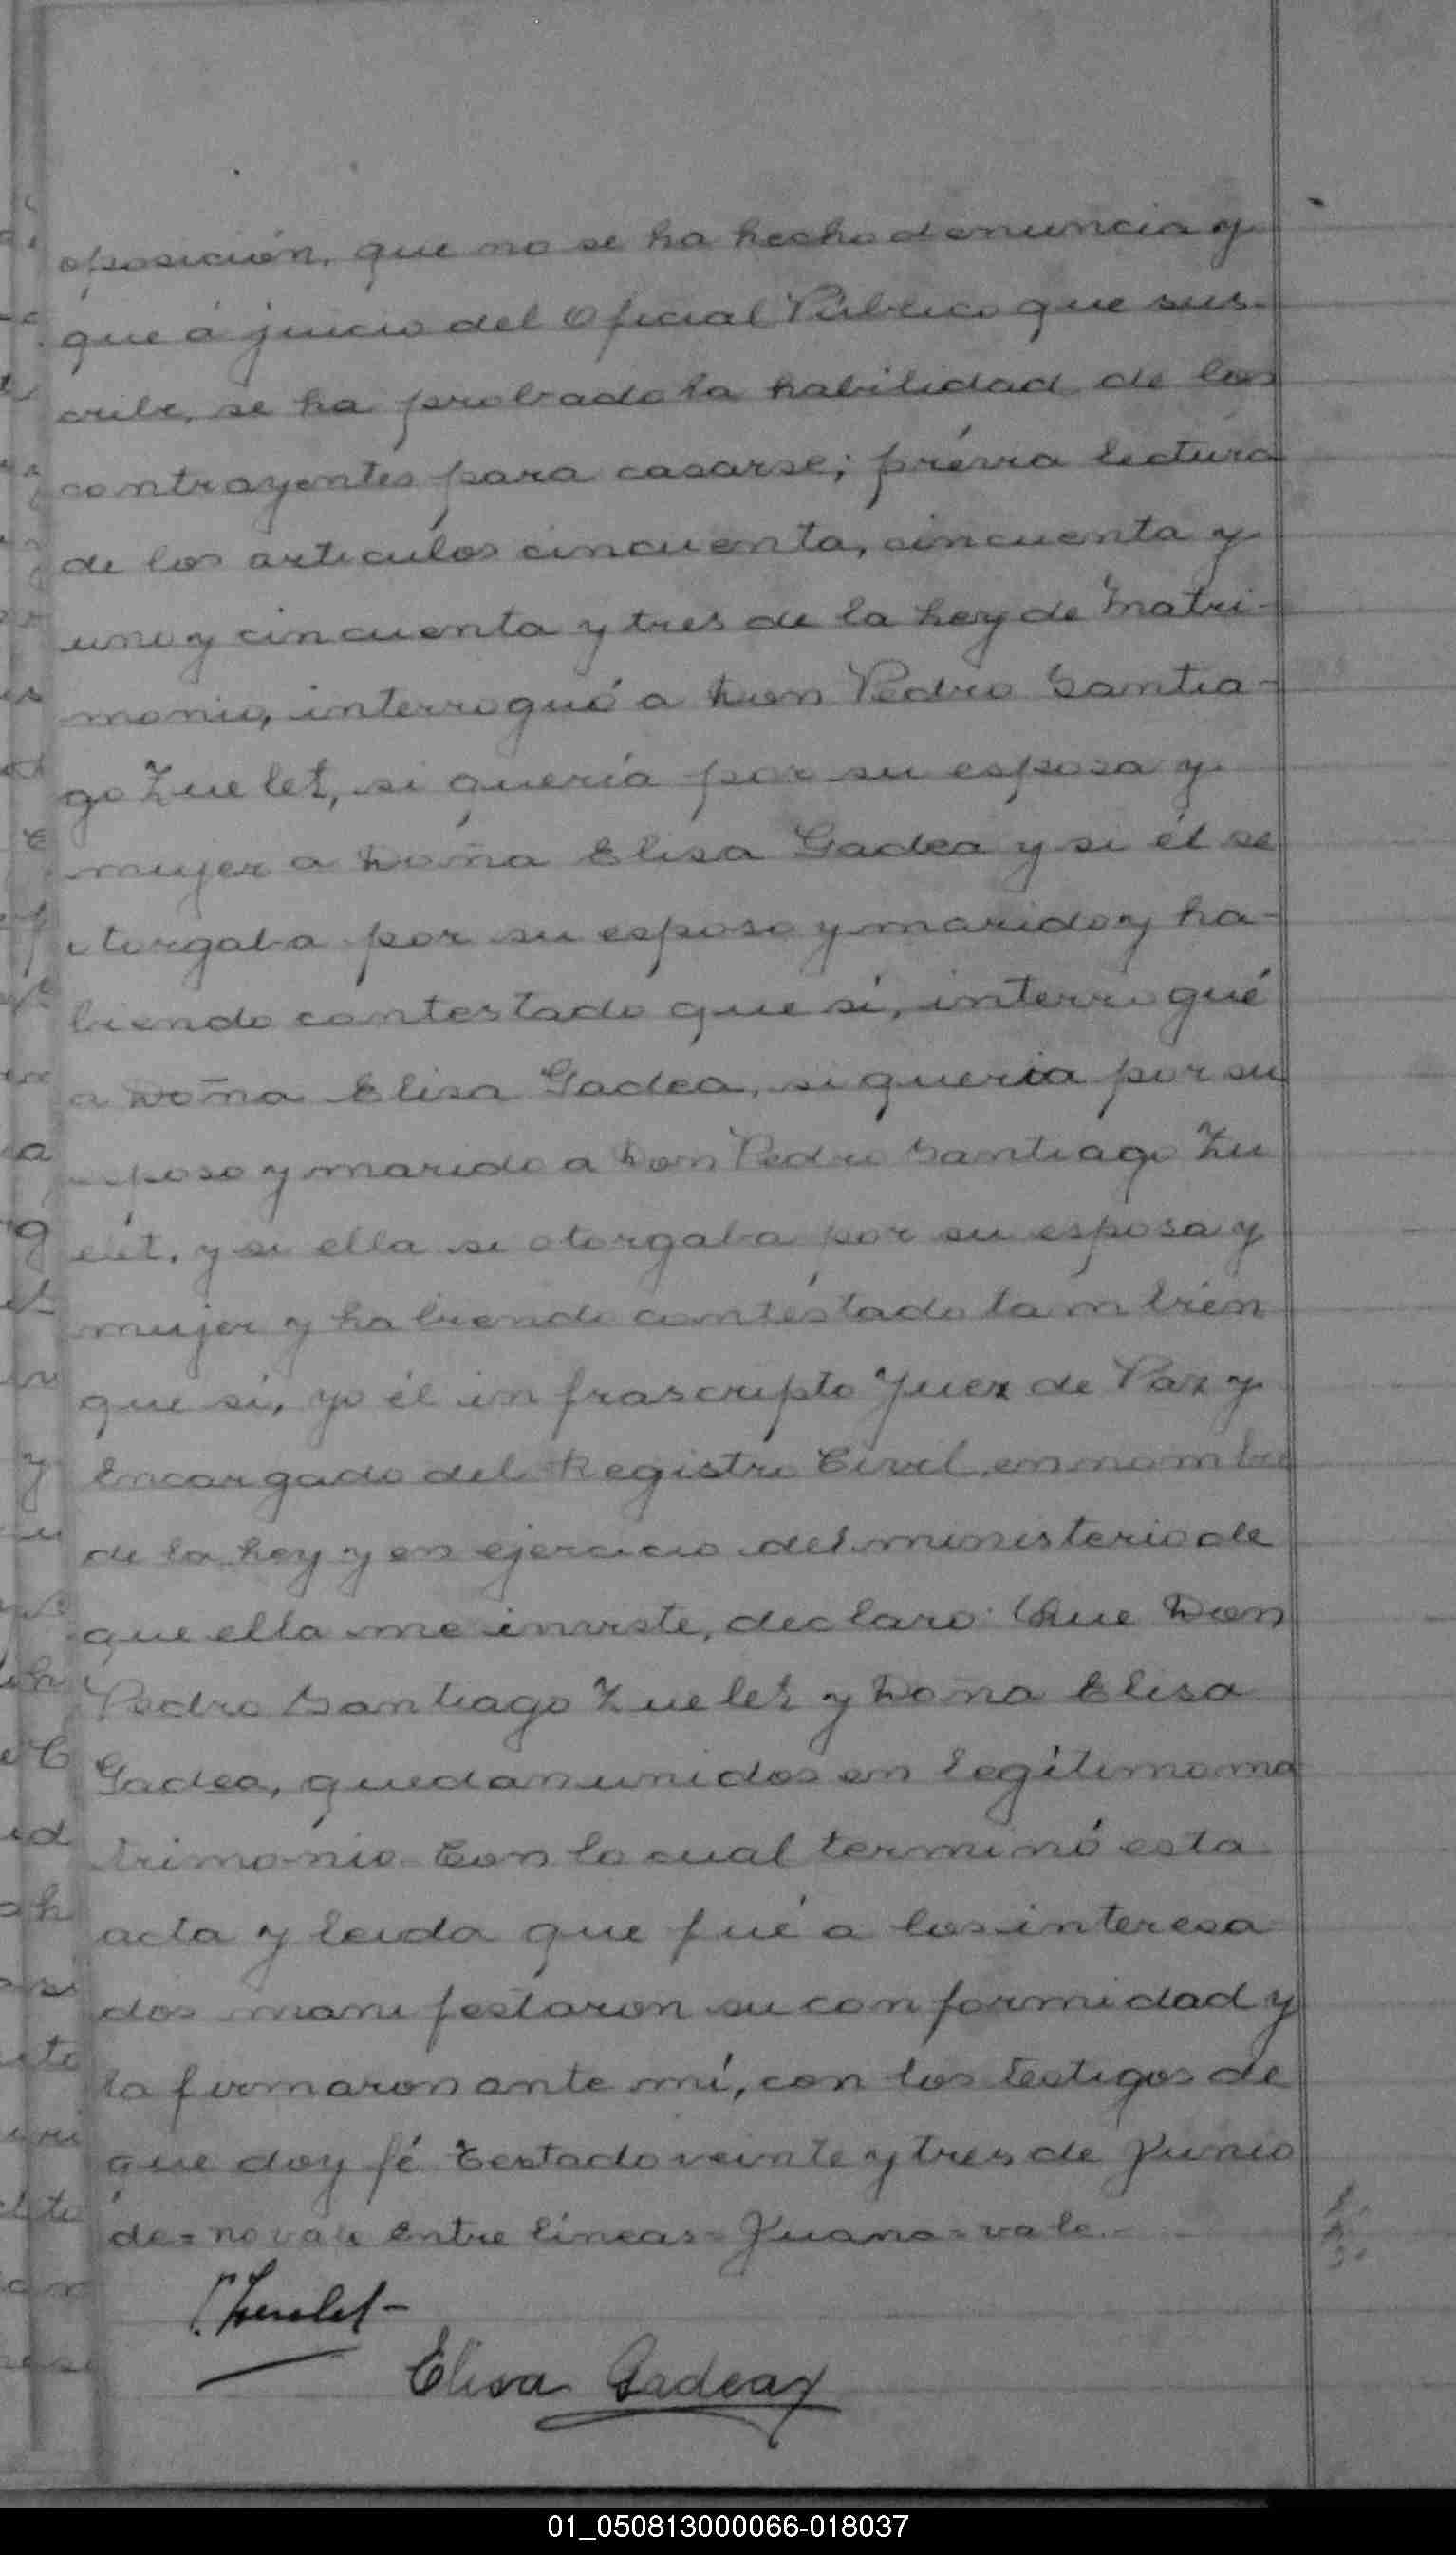 oposición, que no se ha hecho denuncia y
que á juicio del Oficial Público que sus-
cribe, se ha probado la habilidad de los
contrayentes para casarse; prévia lectura
de los articulos cincuenta, cincuenta y
uno y cincuenta y tres de la Ley de Matri-
monio, interrogué a Don Pedro Santia-
go Zuelet, si quería por su esposa y
mujer a Doña Elisa Gadea y si él se
otorgaba por su esposo y marido y ha-
biendo contestado que sí, interrogué
a Doña Elisa Gadea, si queria por su
esposo y marido a Don Pedro Santiago Zu
elét, y si ella se otorgaba por su esposa y
mujer y habiendo contéstado tambien
que sí, yo él infrascripto Juez de Paz y
Encargado del Registro Civil, en nombre
de la Ley y en ejercicio del ministerio de
que ella me inviste, declaro: Que Don
Pedro Santiago Zuelet y Doña Elisa
Gadea, quedan unidos en legítimo ma
trimonio. Con lo cual terminó esta
acta y leida que fué a los interesa
dos manifestaron su conformidad y
la firmaron ante mí, con los testigos de
que doy fé. Testado veinte y tres de Junio
de = no vale Entre líneas = Juana = vale.
P. Zuelet
Elisa Gadea
01_050813000066-018037